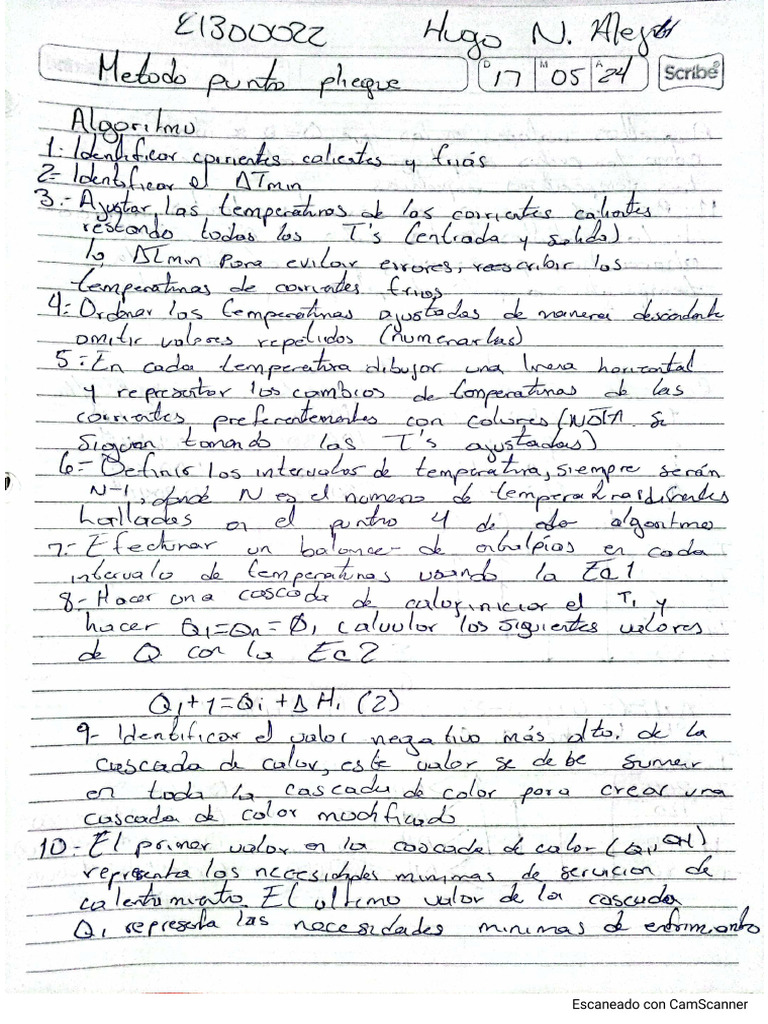 E1300022 Hugo N. Alego
Metodo punto pliegue D 17 M 05 A 24 Scribe
Algoritmo
1.- Identificar corrientes calientes y frías
2- Identificar el ΔTmin
3.- Ajustar, las temperaturas de las corrientes calientes
restando todas las T's (entrada y salida)
la ΔTmin Para evitar errores, reescribir las
temperaturas de corrientes frias
4- Ordenar las temperaturas ajustadas de manera descendente
omitir valores repetidos (numerarlas)
5:- En cada temperatura dibujar una linea horizontal
y representar los cambios de temperaturas de las
corrientes preferentemente con colores (NOTA. Se
siguen tomando las T's ajustadas)
6- Definir los intervalos de temperatura, siempre serán
N-1, donde N es el numero de temperaturas diferentes
halladas en el puntro 4 de algoritmo
7.- Efectunar un balance de entalpias en cada
intervalo de temperaturas usando la Ec 1
8- Hacer una cascada de calor, iniciar el T1 y
hacer Q1=Qn=0, calcular los siguientes valores
de Q con la Ec 2
Qi+1=Qi+ΔHi (2)
9- Identificar el valor negativo más alto. de la
cascada de calor, este valor se debe sumar
en toda la cascada de calor para crear una
cascada de calor modificado
10.- El primer valor en la cascada de calor (Q1, QH)
representa las necesidades minimas de servicion de
calentamiento. El ultimo valor de la cascada
Q1 representa las necesidades minimas de enfrimianto
Escaneado con CamScanner